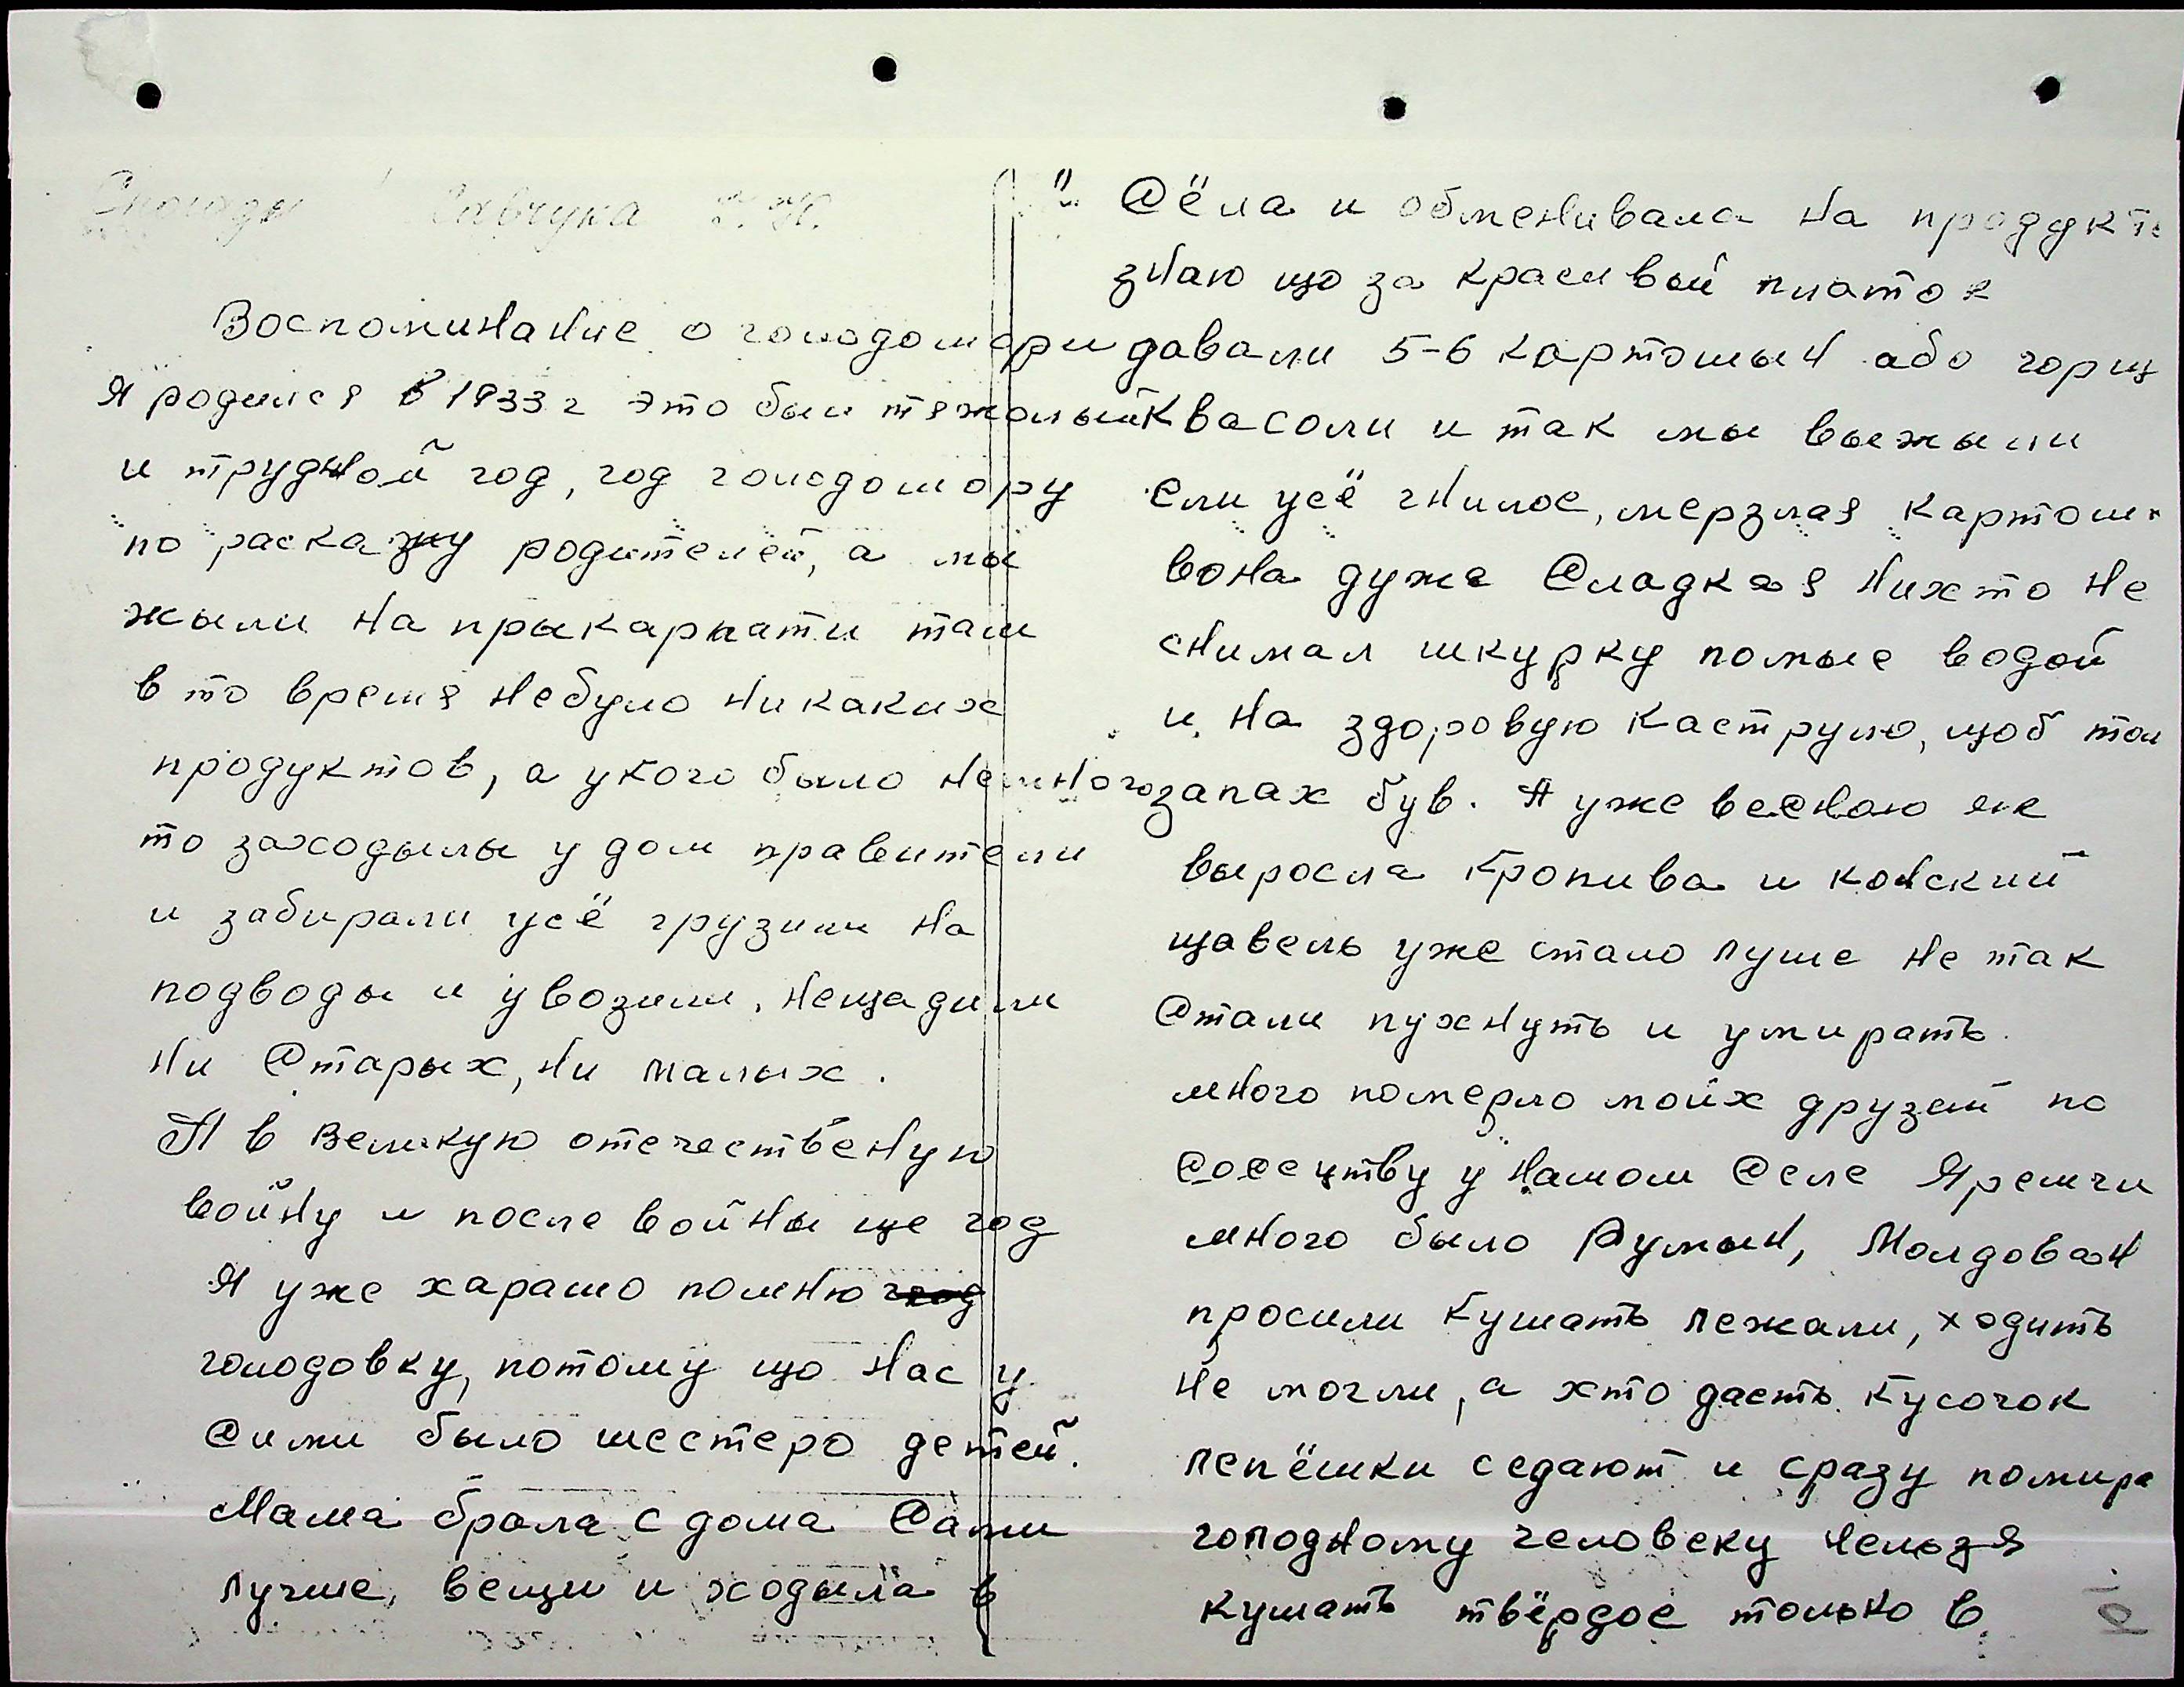 Савчука
Воспоминание о голодомори
Я родился в 1933 г это был тяжолый
и трудной год, год голодомору
по расказу родителей, а мы
жыли на прыкарпати там
в то время небуло никаких
продуктов, а укого было немного
то заходылы у дом правители
и забирали усё грузили на
подводы и увозили, нещадили
ни старых, ни малых.
А в Великую отечественую
войну и после войны ще год
Я уже харашо помню год
голодовку, потому що нас у
сими было шестеро детей.
Мама брала с дома сами
лучше, вещи и ходыла в
сёла и обменивала на продукты
знаю що за красивый платок
давали 5-6 картошын або горщ
квасоли и так мы выжыли
ели усё гнилое, мерзлая картош
вона дуже сладкая нихто не
снимал шкурку помые водой
и на здоровую каструлю, щоб то
запах був. А уже весною як
выросла кропива и конский
щавель уже стало луше не так
стали пухнуть и умирать.
много померло моих друзей по
сосецтву у нашом селе Яремчи
много было Румын, Молдован
просили кушать лежали, ходить
не могли, а хто дасть кусочок
лепёшки седают и сразу помира
голодному человеку нельзя
кушать твёрдое только в